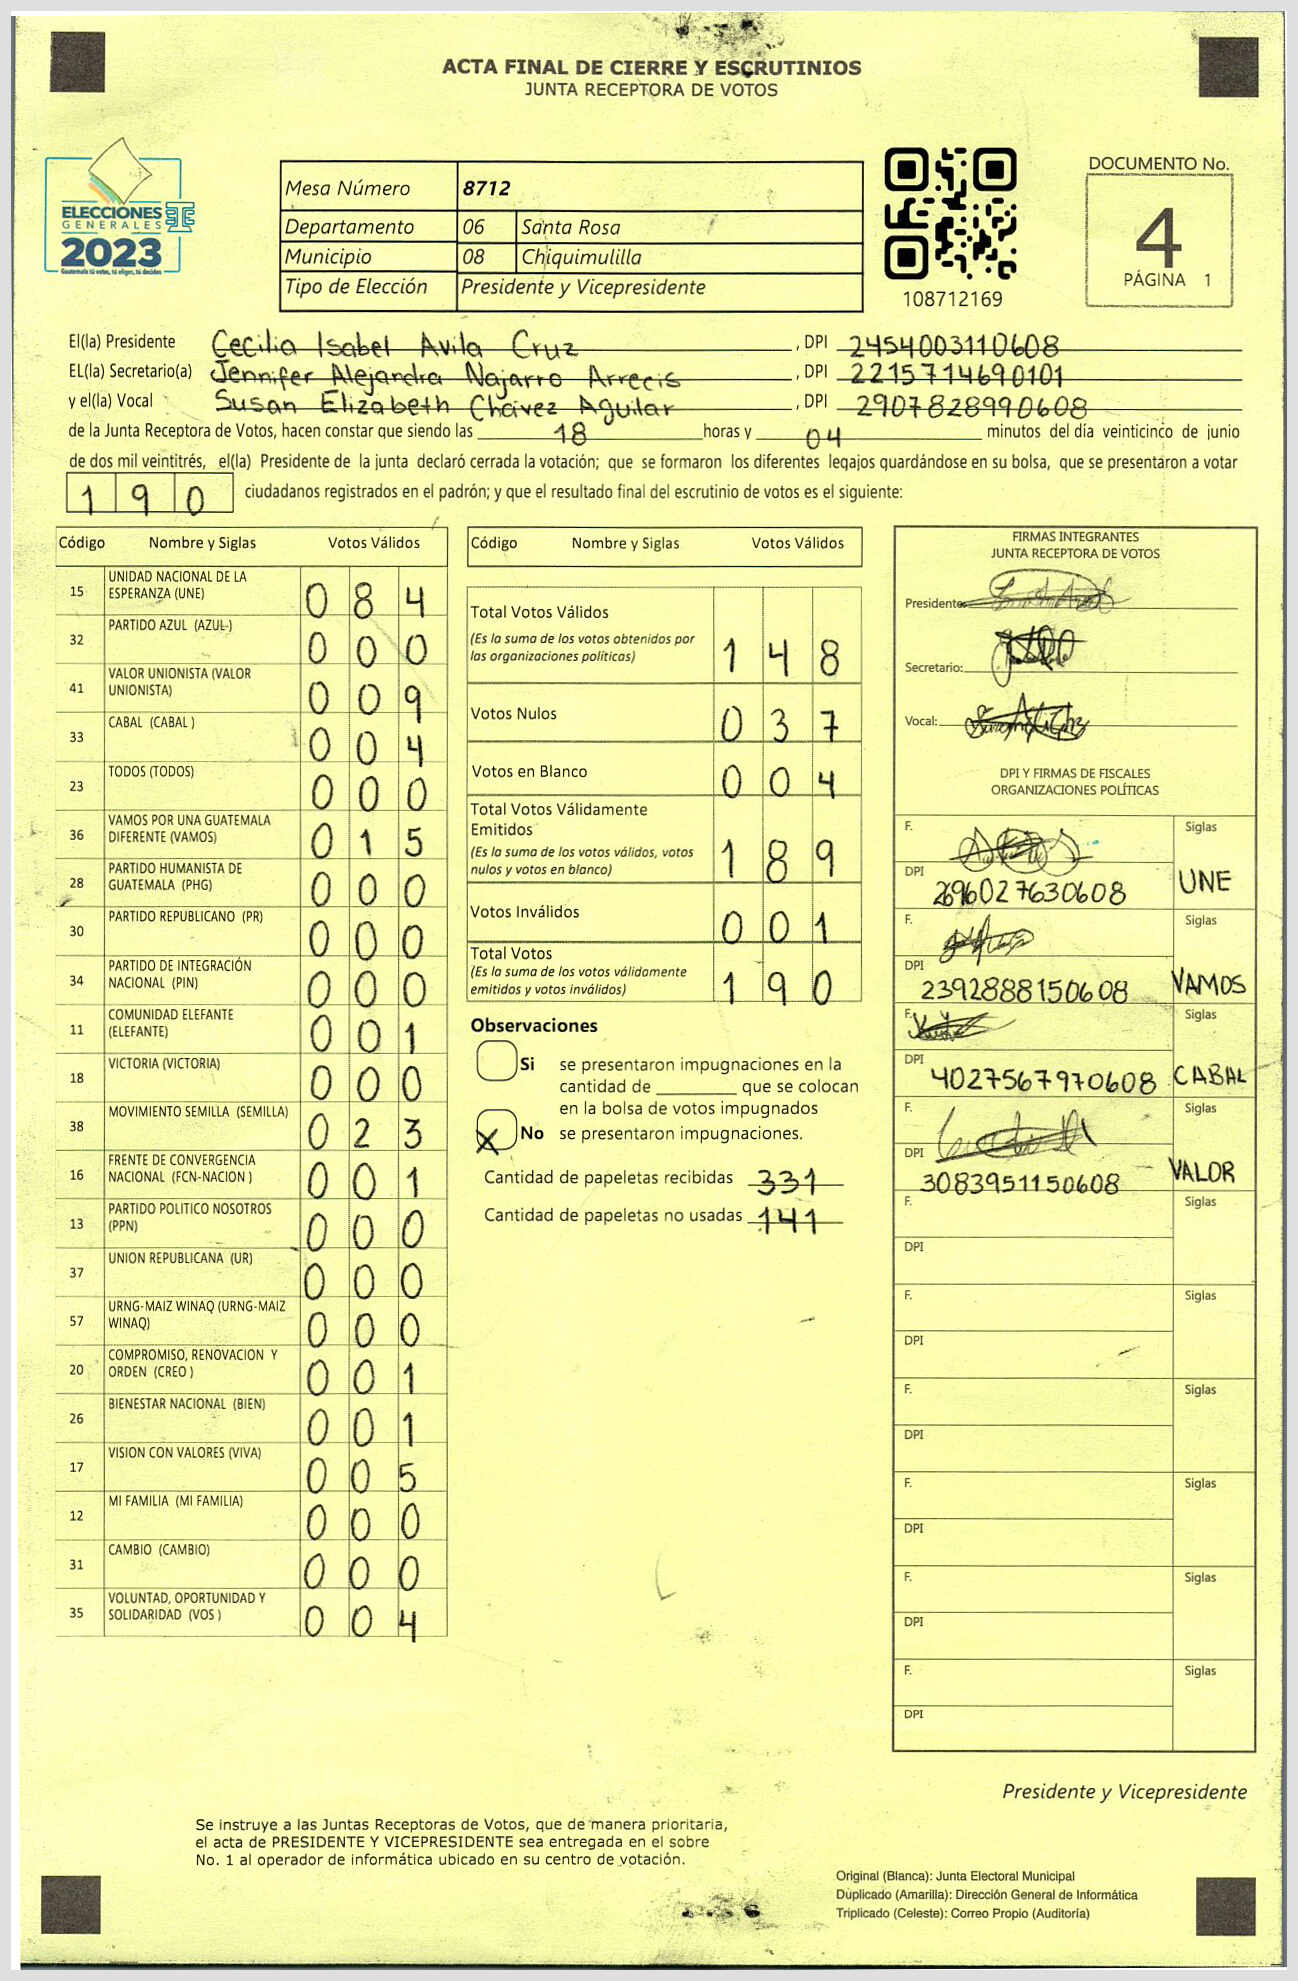 ACTA FINAL DE CIERRE Y ESCRUTINIOS
JUNTA RECEPTORA DE VOTOS
ELECCIONES
GENERALES
2023
Guatemala tú votas, tú eliges, tú decides
Mesa Número 8712
Departamento 06 Santa Rosa
Municipio 08 Chiquimulilla
Tipo de Elección Presidente y Vicepresidente
108712169
DOCUMENTO No.
4
PÁGINA 1
El(la) Presidente Cecilia Isabel Avila Cruz , DPI 2454003110608
EL(la) Secretario(a) Jennifer Alejandra Najarro Arrecis , DPI 2215714690101
y el(la) Vocal Susan Elizabeth Chávez Aguilar , DPI 2907828990608
de la Junta Receptora de Votos, hacen constar que siendo las 18 horas y 04 minutos del día veinticinco de junio
de dos mil veintitrés, el(la) Presidente de la junta declaró cerrada la votación; que se formaron los diferentes legajos guardándose en su bolsa, que se presentaron a votar
190 ciudadanos registrados en el padrón; y que el resultado final del escrutinio de votos es el siguiente:
Código Nombre y Siglas Votos Válidos
15 UNIDAD NACIONAL DE LA
ESPERANZA (UNE) 084
32 PARTIDO AZUL (AZUL-) 000
41 VALOR UNIONISTA (VALOR
UNIONISTA) 009
33 CABAL (CABAL ) 004
23 TODOS (TODOS) 000
36 VAMOS POR UNA GUATEMALA
DIFERENTE (VAMOS) 015
28 PARTIDO HUMANISTA DE
GUATEMALA (PHG) 000
30 PARTIDO REPUBLICANO (PR) 000
34 PARTIDO DE INTEGRACIÓN
NACIONAL (PIN) 000
11 COMUNIDAD ELEFANTE
(ELEFANTE) 001
18 VICTORIA (VICTORIA) 000
38 MOVIMIENTO SEMILLA (SEMILLA) 023
16 FRENTE DE CONVERGENCIA
NACIONAL (FCN-NACION ) 001
13 PARTIDO POLITICO NOSOTROS
(PPN) 000
37 UNION REPUBLICANA (UR) 000
57 URNG-MAIZ WINAQ (URNG-MAIZ
WINAQ) 000
20 COMPROMISO, RENOVACION Y
ORDEN (CREO ) 001
26 BIENESTAR NACIONAL (BIEN) 001
17 VISION CON VALORES (VIVA) 005
12 MI FAMILIA (MI FAMILIA) 000
31 CAMBIO (CAMBIO) 000
35 VOLUNTAD, OPORTUNIDAD Y
SOLIDARIDAD (VOS ) 004
Código Nombre y Siglas Votos Válidos
Total Votos Válidos
(Es la suma de los votos obtenidos por
las organizaciones políticas) 148
Votos Nulos 037
Votos en Blanco 004
Total Votos Válidamente
Emitidos
(Es la suma de los votos válidos, votos
nulos y votos en blanco) 189
Votos Inválidos 001
Total Votos
(Es la suma de los votos válidamente
emitidos y votos inválidos) 190
Observaciones
Si se presentaron impugnaciones en la
cantidad de ________ que se colocan
en la bolsa de votos impugnados
X No se presentaron impugnaciones.
Cantidad de papeletas recibidas 331
Cantidad de papeletas no usadas 141
FIRMAS INTEGRANTES
JUNTA RECEPTORA DE VOTOS
Presidente:
Secretario:
Vocal:
DPI Y FIRMAS DE FISCALES
ORGANIZACIONES POLÍTICAS
F. Siglas
DPI 2696027630608 UNE
F. Siglas
DPI 2392888150608 VAMOS
F. Siglas
DPI 4027567970608 CABAL
F. Siglas
DPI 3083951150608 VALOR
F. Siglas
DPI
F. Siglas
DPI
F. Siglas
DPI
F. Siglas
DPI
F. Siglas
DPI
F. Siglas
DPI
Presidente y Vicepresidente
Se instruye a las Juntas Receptoras de Votos, que de manera prioritaria,
el acta de PRESIDENTE Y VICEPRESIDENTE sea entregada en el sobre
No. 1 al operador de informática ubicado en su centro de votación.
Original (Blanca): Junta Electoral Municipal
Duplicado (Amarilla): Dirección General de Informática
Triplicado (Celeste): Correo Propio (Auditoría)